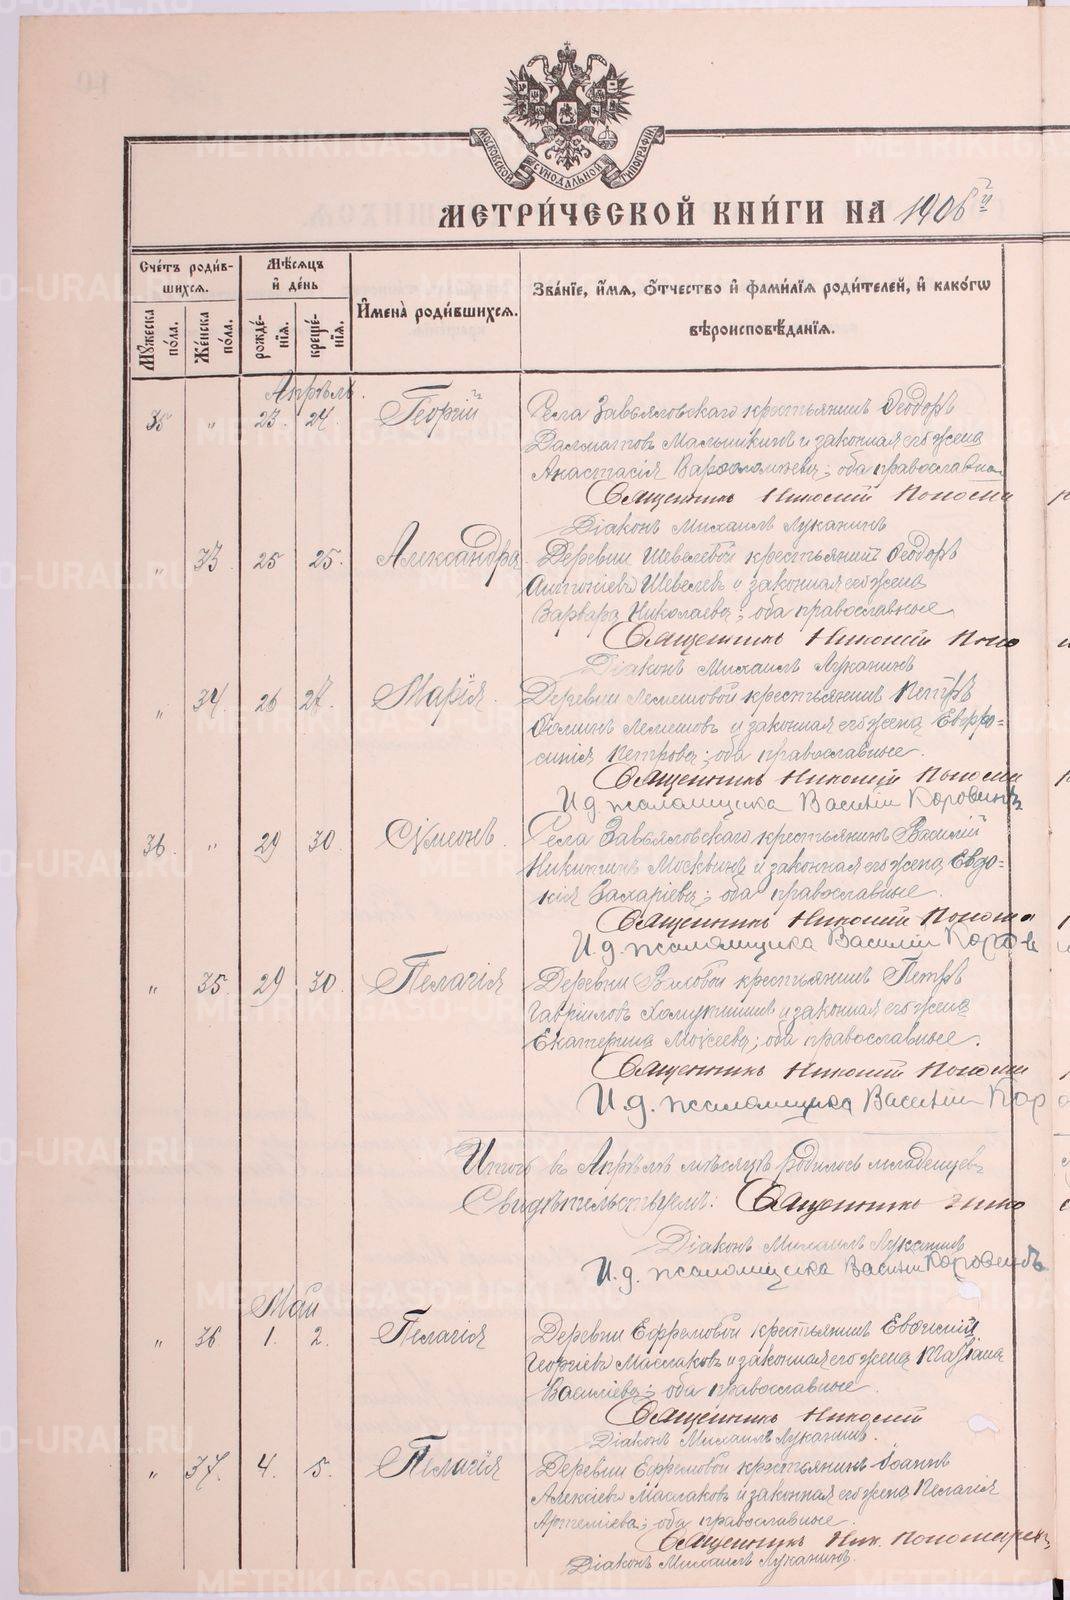 МОСКОВСКОЙ СУНОДАЛЬНОЙ ТИПОГРАФІИ
МЕТРИ́ЧЕСКОЙ КНИ́ГИ НА 1906 й
Сче́тъ роди́в-
шихся.
Мѣ́сяцъ
и҆ де́нь
И҆мена̀ роди́вшихся.
Зва́нїе, и҆́мя, ѻ҆́тчество и҆ фами́лїя роди́телей, и҆ како́гѡ
вѣроисповѣ́данїя.
Мꙋ́жеска по́ла.
Же́нска по́ла.
рожде́нїя.
креще́нїя.
Апрѣль.
35 " 23. 24. Георгій Села Завьяловскаго крестьянинъ Ѳеодоръ
Далматовъ Малышкинъ и законная его жена
Анастасія Варѳоломеева; оба православные
Священникъ Николай Поном
Діаконъ Михаилъ Луканинъ
" 33 25 25. Александра Деревни Шевелевой крестьянинъ Ѳеодоръ
Антоніевъ Шевелевъ и законная его жена
Варвара Николаева; оба православные
Священникъ Николай Поно
Діаконъ Михаилъ Луканинъ
" 34. 26 27. Марія Деревни Лемешовой крестьянинъ Петръ
Ѳоминъ Лемешовъ и законная его жена Евфро-
синія Петрова; оба православные.
Священникъ Николай Поном
И д псаломщика Василій Коровинъ
36. " 29 30. Сѵмеонъ. Села Завьяловскаго крестьянинъ Василій
Никитинъ Москвинъ и законная его жена Евдо-
кія Захаріева; оба православные.
Священникъ Николай Поном
И.д. псаломщика Василій Коров
" 35. 29 30. Пелагія Деревни Зиловой крестьянинъ Петръ
Гавріиловъ и законная его жена
Екатерина Моѵсеева; оба православные.
Священникъ Николай Поном
И.д. псаломщика Василій Кор
Итого въ Апрѣлѣ мѣсяцѣ родилось младенцевъ
Свидѣтельствуемъ: Священникъ Нико
Діаконъ Михаилъ Луканинъ
И.д. псаломщика Василій Коровинъ
Май
" 36 1. 2. Пелагія Деревни Ефремовой крестьянинъ Евѳимій
Георгіевъ Маслаковъ и законная его жена
Василіева; оба православные.
Священникъ Николай
Діаконъ Михаилъ Луканинъ.
" 37. 4. 5. Пелагія Деревни Ефремовой крестьянинъ Іоаннъ
Алексіевъ Маслаковъ и законная его жена Пелагія
Артеміева; оба православные.
Священникъ Ник. Пономарев
Діаконъ Михаилъ Луканинъ.
METRIKI.GASO-URAL.RU